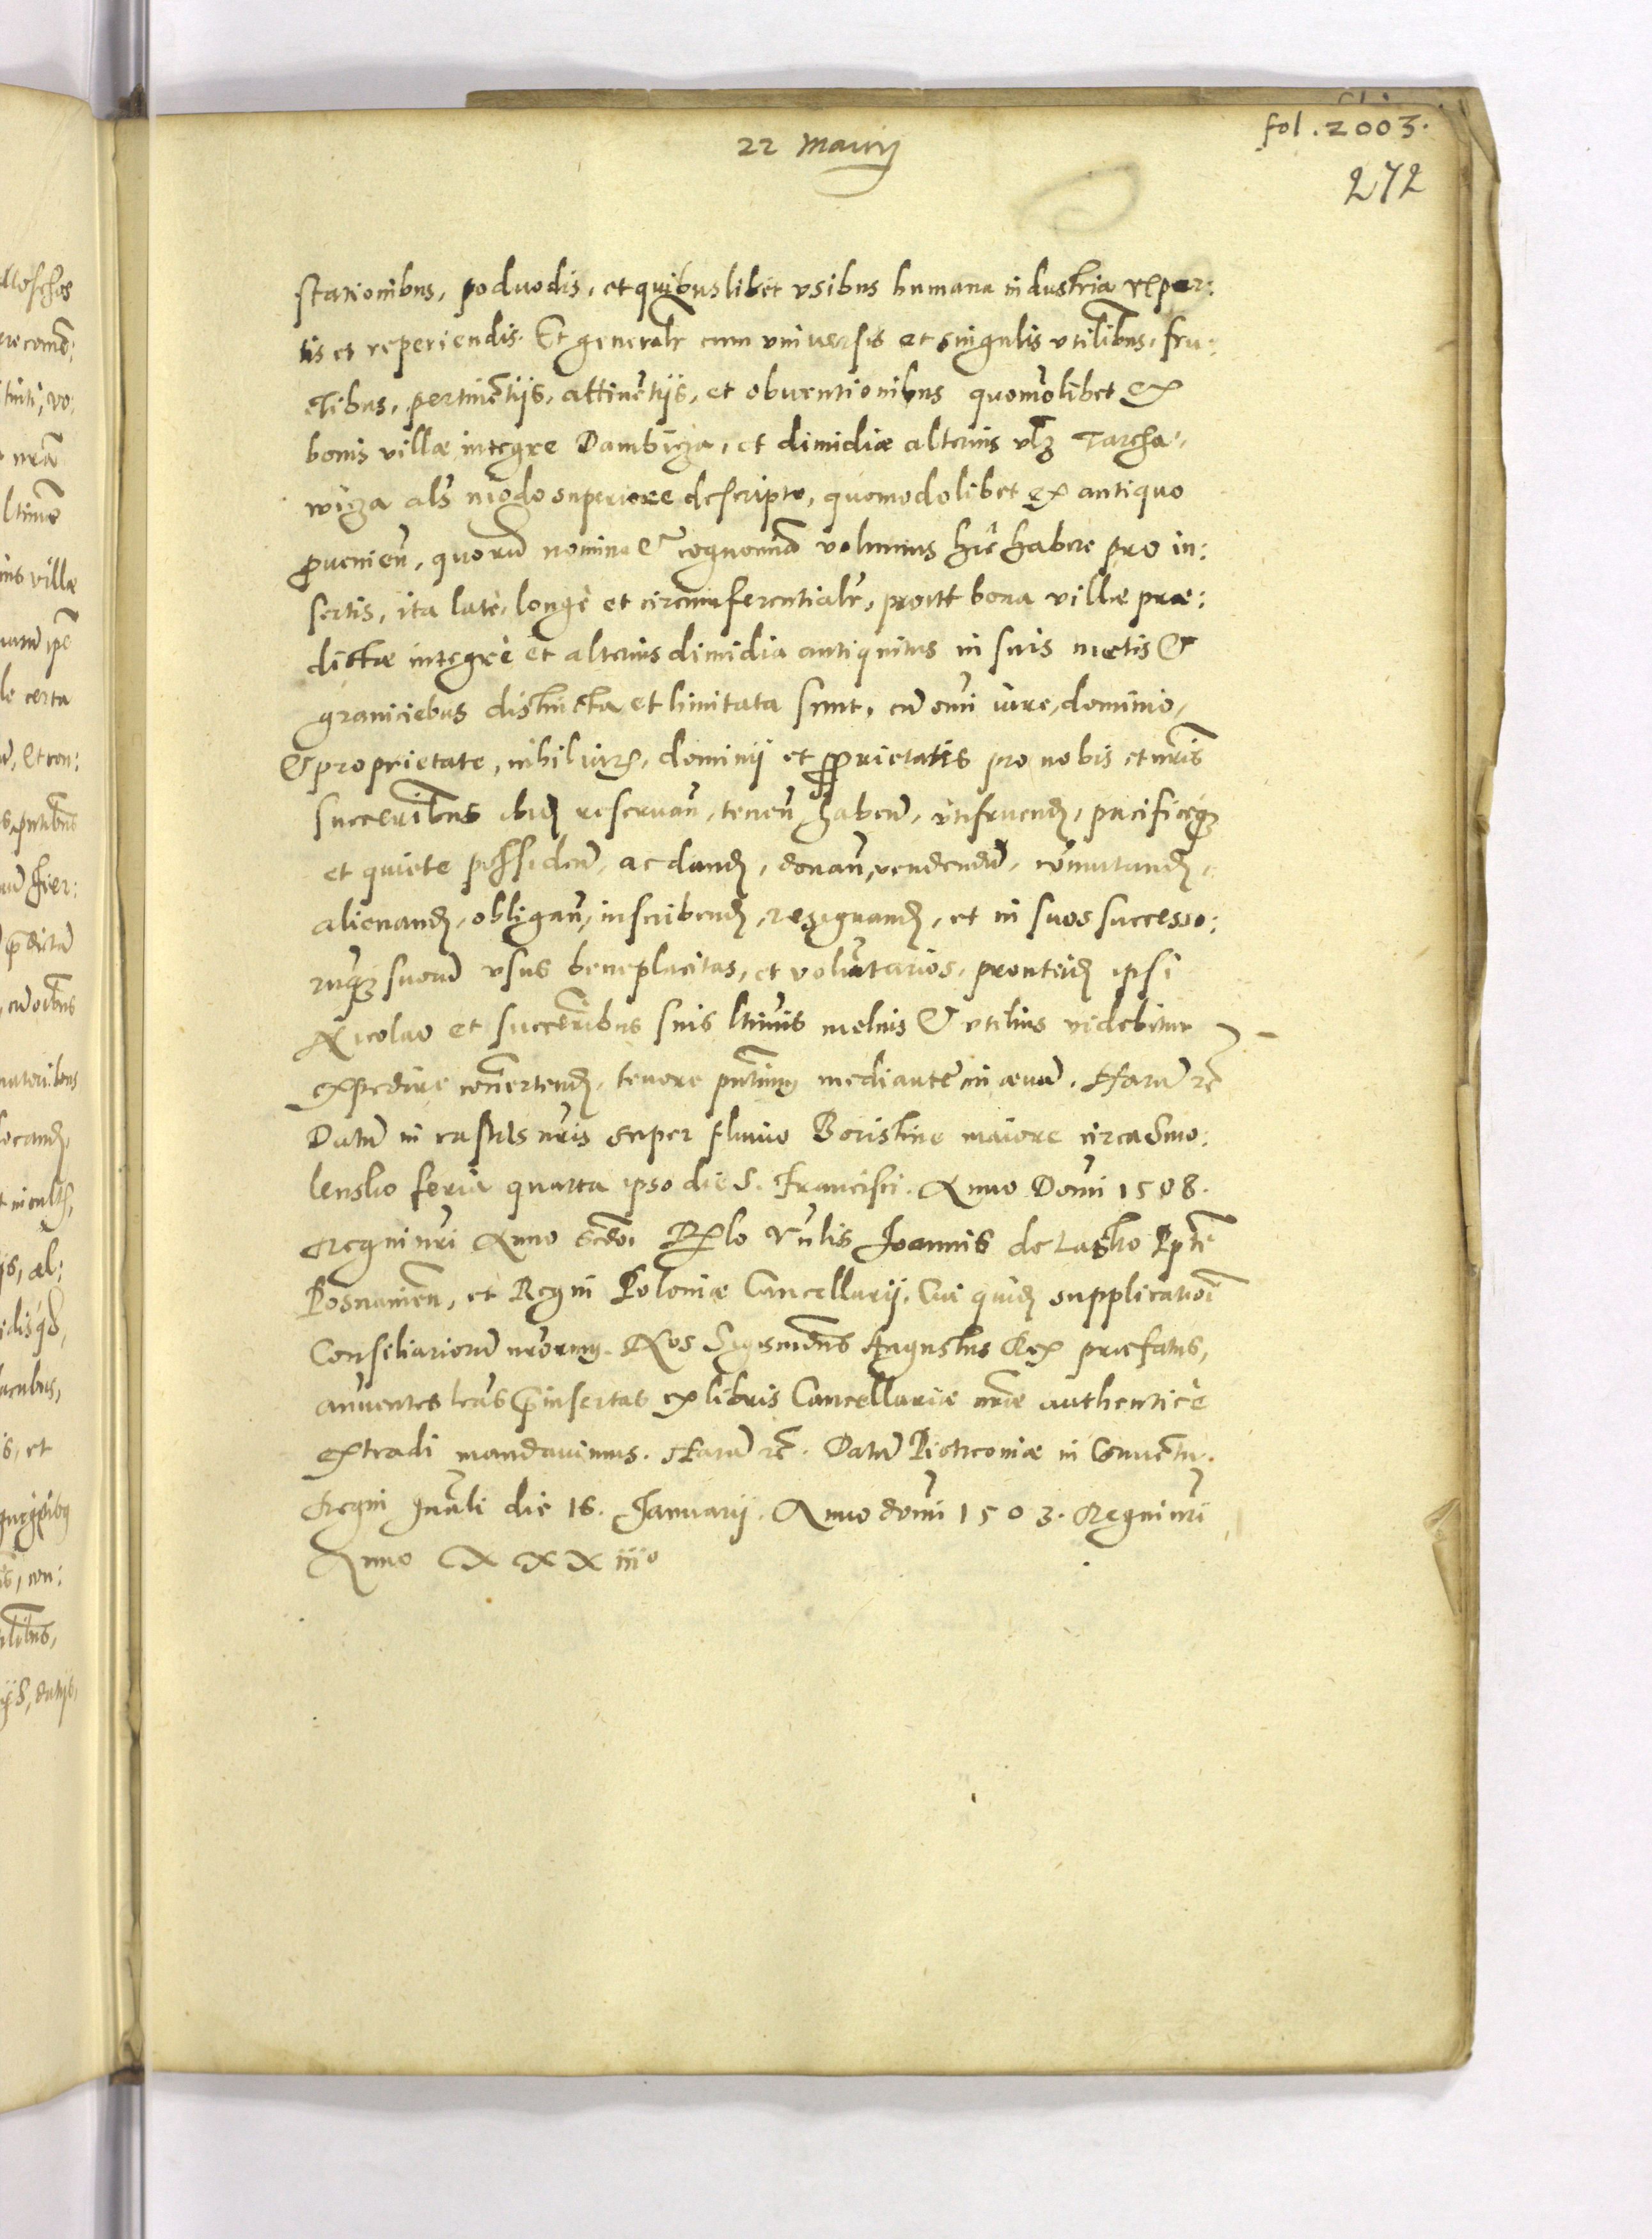 22 Maurij
fol. 2003.
272
stationibus, poduodis, et quibuslibet vsibus humana industria reper:
tis et reperiendis. Et generalr cum vniuersis et singulis vtilibus, fru:
ctibus, pertinētijs, attinētijs, et obuentionibus quomōlibet ex
bonis villæ integre Dambiza, et dimidiæ alterius vlz Tarcha,
wiza als modo superiore descripto, quomodolibet ex antiquo
prouenien̄, quorū nomina et cognomina volumus hic habere pro in:
sertis, ita late, longè et circumferentialr, proutt bona villæ præ:
dictæ integrè et alterius dimidia antiquitus in suis metis &
graniciebus distincta et limitata sunt, cū omī iure, dominio,
& proprietate, nihil iurꝭ, dominij et proprietatis pro nobis et nris
succeribus ibid reseruan̄, tenen̄ haben̄, vtifruend, pacificeqȝ
et quiete possiden̄, ac dand, donan̄, vendendū, cōmutand,
alienand, obligan̄, inscribend, resignand, et in suos successo:
rūqȝ suorū vsus beneplacitas, et volūtarios, prout eid ipsi
Nicolao et succeribus suis ltimis melius & vtilius videbitur
expedire conuertend, tenore pntium mediante in æuū. Harū rē
Datū in castris nris super fluuio Boristine maiore circa Smo:
lensko feria quarta ipso die S. Francisci. Anno Domī 1508.
Regni nri Anno scdoi Rlo Vnlis Joannis de Lasko Pptē
Posnanien̄, et Regni Poloniæ Cancellarij. Cui quid supplicationī
Consiliariorū nrorum. Nos Sigismundus Augustus Rex præfatus,
annuentes lras preinsertas ex libris Cancellariæ nræ authenticè
extradi mandauimus. Harū rē. Datū Piotrconiæ in Conuētu
Regni gnāli die 16. Januarij. Anno domī 1503. Regni nri
Anno XXXiiiᵒ